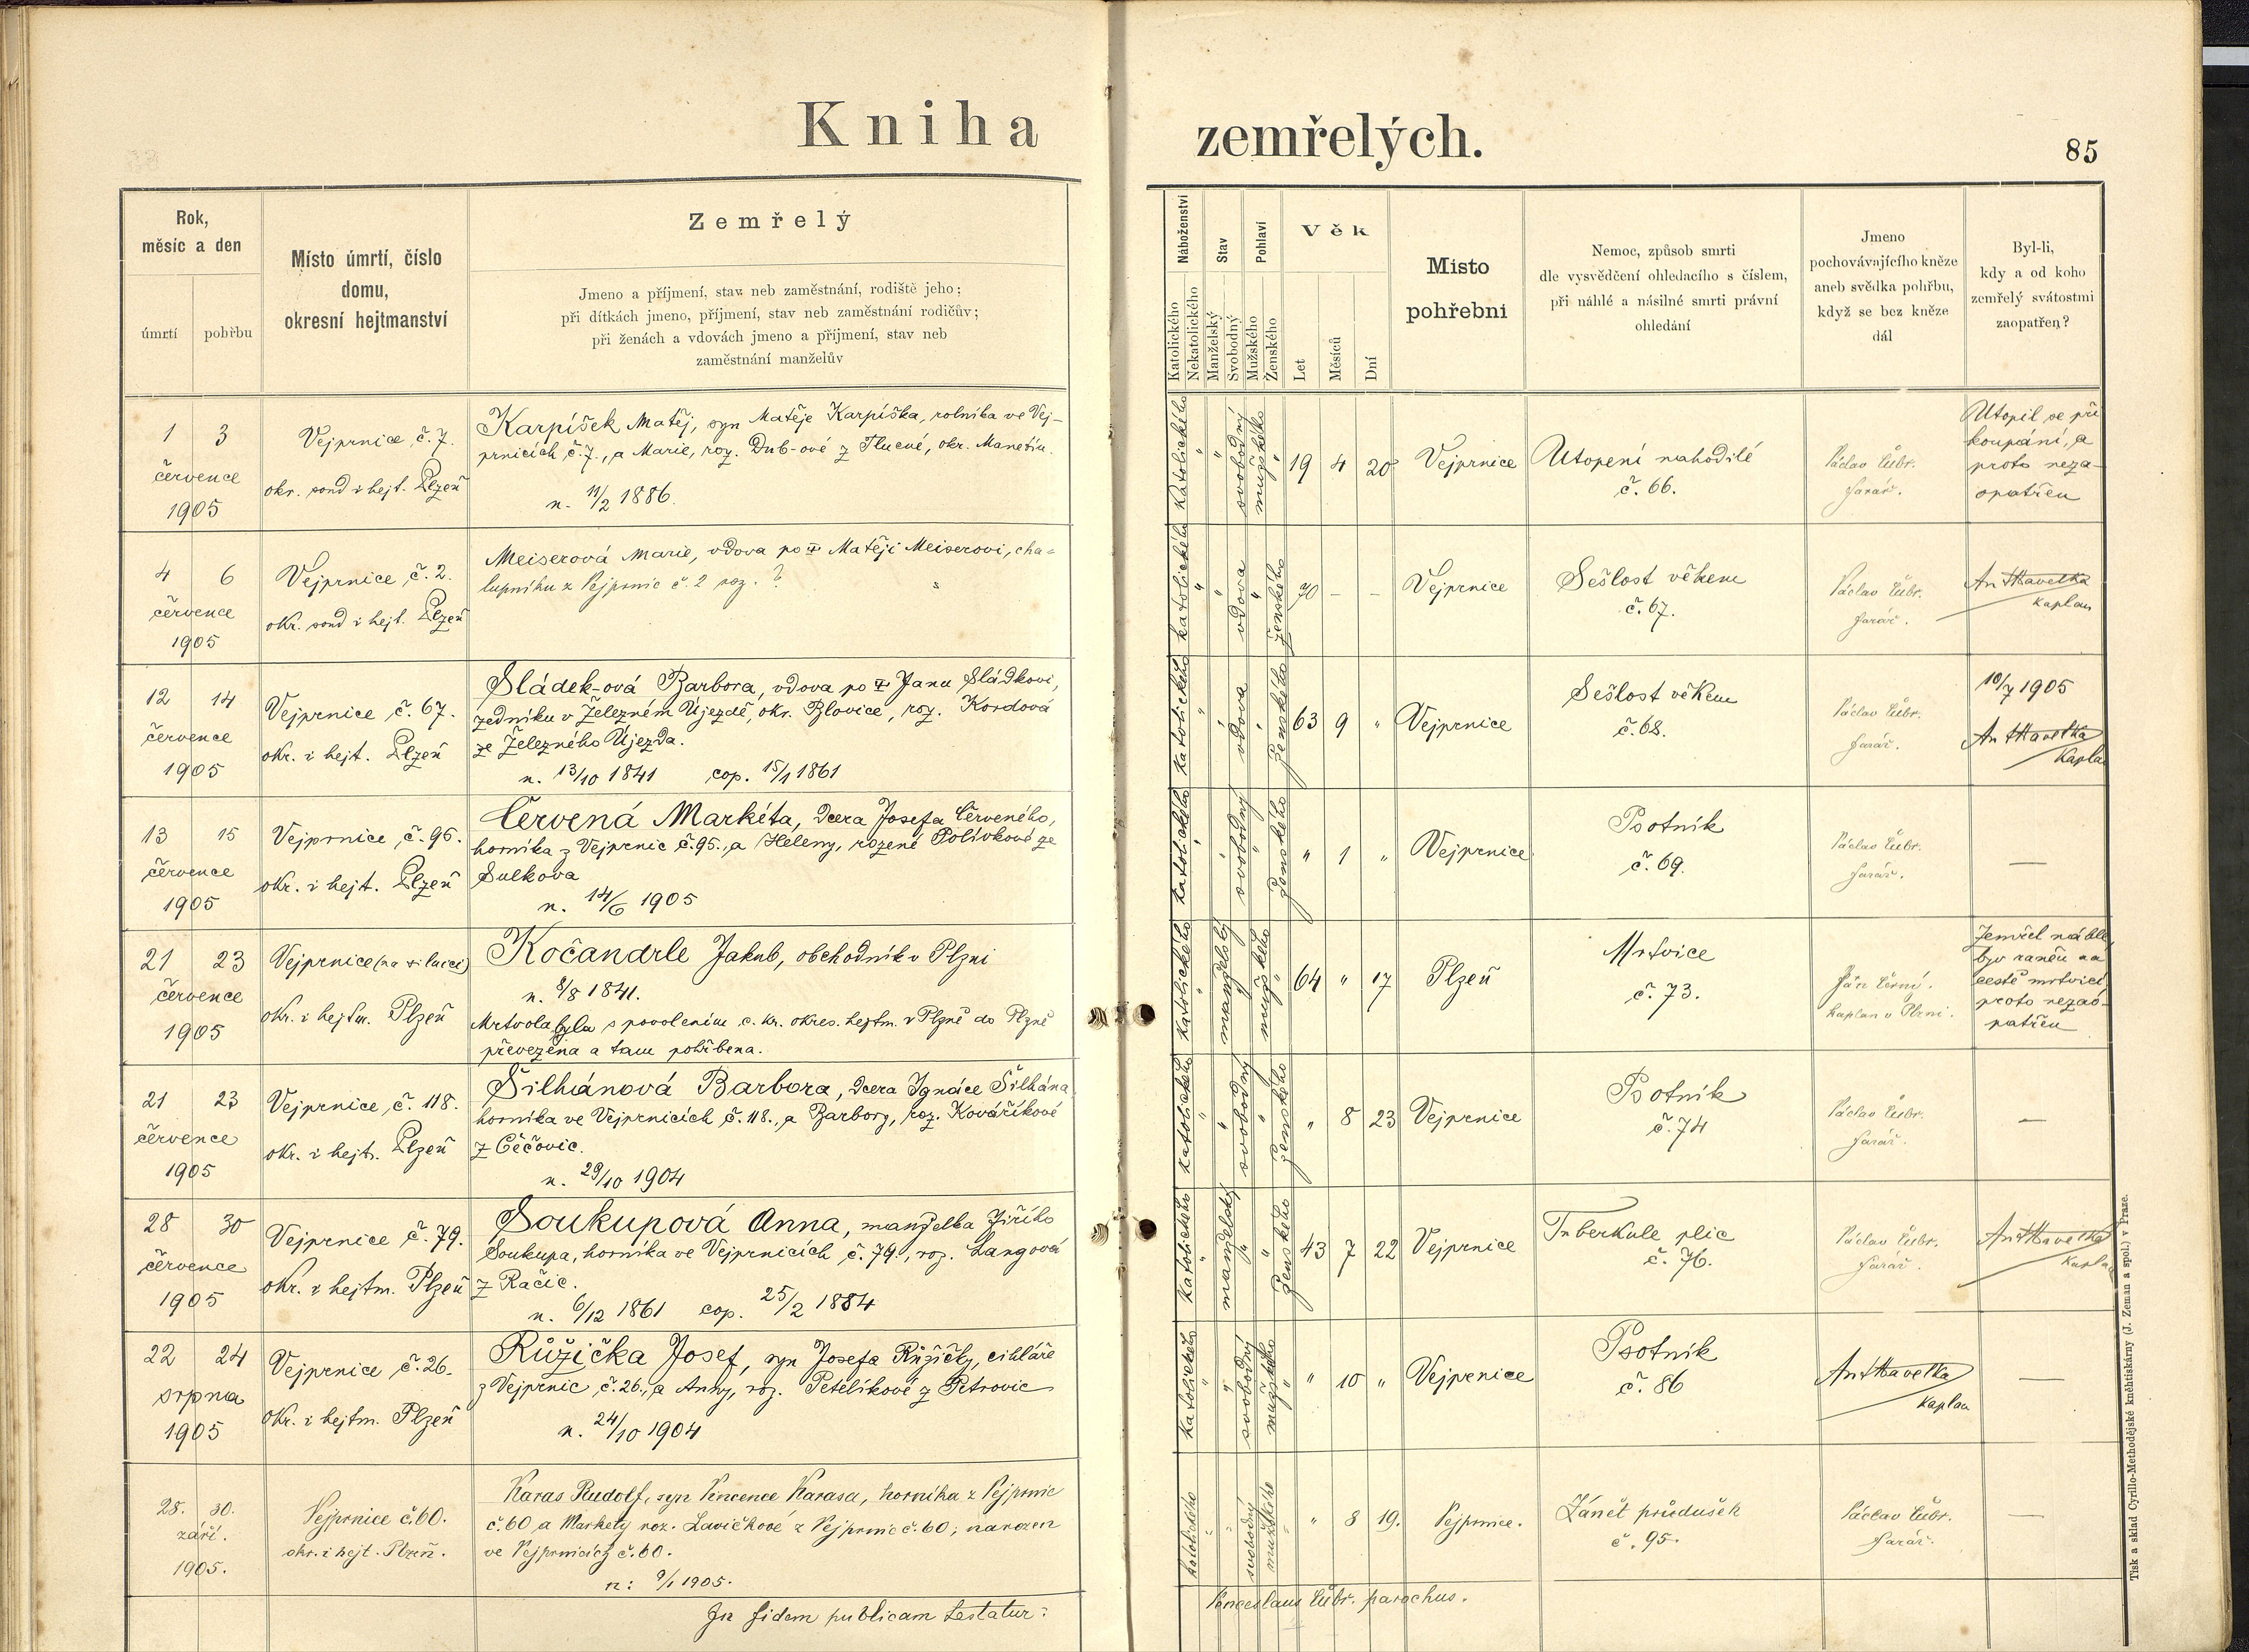 Kniha zemřelých.
85
Rok,
měsíc a den
úmrtí
pohřbu
Místo úmrtí, číslo
domu,
okresní hejtmanství
Zemřelý
Jmeno a příjmení, stav neb zaměstnání, rodiště jeho;
při dítkách jmeno, příjmení, stav neb zaměstnání rodičův;
při ženách a vdovách jmeno a příjmení, stav neb
zaměstnání manželův
Náboženství
Katolického
Nekatolického
Stav
Manželský
Svobodný
Pohlaví
Mužského
Ženského
Věk
Let
Měsíců
Dní
Místo
pohřební
Nemoc, způsob smrti
dle vysvědčení ohledacího s číslem,
při náhlé a násilné smrti právní
ohledání
Jmeno
pochovávajícího kněze
aneb svědka pohřbu,
když se bez kněze
dál
Byl-li,
kdy a od koho
zemřelý svátostmi
zaopatřen?
1 3
července
1905
Vejprnice, č. 7.
okr. soud i hejt. Plzeň
Karpíšek Matěj, syn Matěje Karpíška, rolníka ve Vej-
prnicích č. 7., a Marie, roz. Dub-ové z Tlucné, okr. Manetín.
n. 11/2 1886.
katolického
svobodný
mužského
19 4 20
Vejprnice
Utopení nahodilé
č. 66.
Václav Cúbr.
farář.
Utopil se při
koupání, a
proto neza-
opatřen
4 6
července
1905
Vejprnice, č. 2.
okr. soud i hejt. Plzeň
Meiserová Marie, vdova po Matěji Meiserovi, cha-
lupníku z Vejprnic č. 2 roz. ?
katolického
vdova
ženského
70 - -
Vejprnice
Sešlost věkem
č. 67.
Václav Cúbr.
farář.
Ant Havelka
kaplan
12 14
července
1905
Vejprnice, č. 67.
okr. i hejt. Plzeň
Sládek-ová Barbora, vdova po Janu Sládkovi,
zedníku v Železném Újezdě, okr. Blovice, roz. Kordová
ze Železného Újezda.
n. 13/10 1841 cop. 15/1 1861
katolického
vdova
ženského
63 9 "
Vejprnice
Sešlost věkem
č. 68.
Václav Cúbr.
farář.
10/7 1905
Ant Havelka
Kapla
13 15
července
1905
Vejprnice, č. 95.
okr. i hejt. Plzeň
Červená Markéta, dcera Josefa Červeného,
horníka z Vejprnic č. 95., a Heleny, rozené Polívkové ze
Sulkova
n. 14/6 1905
katolického
svobodný
ženského
" 1 "
Vejprnice
Psotník
č. 69.
Václav Cúbr.
farář.
—
21 23
července
1905
Vejprnice (na silnici)
okr. i hejtm. Plzeň
Kočandrle Jakub, obchodník v Plzni
n. 8/8 1841.
Mrtvola byla s povolením c. kr. okres. hejtm. v Plzně do Plzně
převezena a tam pohřbena.
katolického
manželský
mužského
64 " 17
Plzeň
Mrtvice
č. 73.
Jan Černí.
kaplan v Plzni.
Zemřel náhle,
byv raněn na
cestě mrtvicí,
proto nezao-
patřen
21 23
července
1905
Vejprnice, č. 118.
okr. i hejt. Plzeň
Šilhánová Barbora, dcera Ignáce Šilhána
horníka ve Vejprnicích č. 118., a Barbory, roz. Kovaříkové
z Čéčovic.
n. 29/10 1904
katolického
svobodný
ženského
" 8 23
Vejprnice
Psotník
č. 74
Václav Cúbr.
farář.
—
28 30
července
1905
Vejprnice č. 79.
okr. i hejtm. Plzeň
Soukupová Anna, manželka Jiřího
Soukupa, horníka ve Vejprnicích č. 79., roz. Langová
z Račic.
n. 6/12 1861 cop. 25/2 1884
katolického
manželský
ženského
43 7 22
Vejprnice
Tuberkule plic
č. 76.
Václav Cúbr.
farář.
Ant Havelka
kaplan
22 24
srpna
1905
Vejprnice, č. 26.
okr. i hejtm. Plzeň
Růžička Josef, syn Josefa Růžičky, cihláře
z Vejprnic, č. 26., a Anny, roz. Petelíkové z Petrovic
n. 24/10 1904
katolického
svobodný
mužského
" 10 "
Vejprnice
Psotník
č. 86
Ant Havelka
kaplan
—
28. 30.
září.
1905.
Vejprnice č. 60.
okr. i hejt. Plzeň.
Karas Rudolf, syn Vincence Karasa, horníka z Vejprnic
č. 60 a Markety roz. Lavičkové z Vejprnic č. 60; narozen
ve Vejprnicích č. 60.
n: 9/1 1905.
katolického
svobodný
mužského
" 8 19.
Vejprnice.
Zánět průdušek
č. 95.
Václav Cúbr.
farář.
—
In fidem publicam testatur:
Venceslaus Cúbr. parochus.
Tisk a sklad Cyrillo-Methodějské kněhtiskárny (J. Zeman a spol.) v Praze.